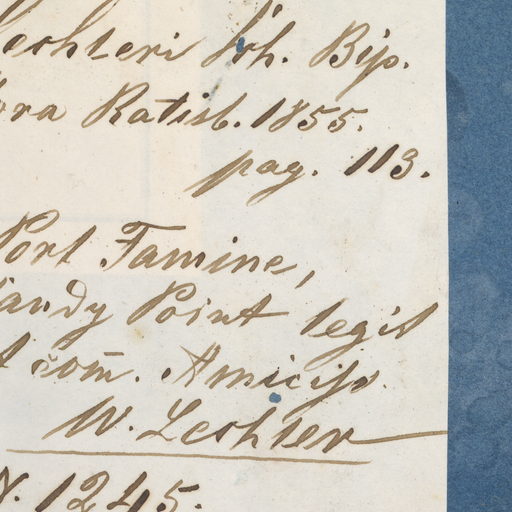 Lechleri Sch. Bip.
Flora Ratisb. 1855.
pag. 113.
Port Famine,
Sandy Point legit
et com. Amiciss.
W. Lechler
N. 1245.